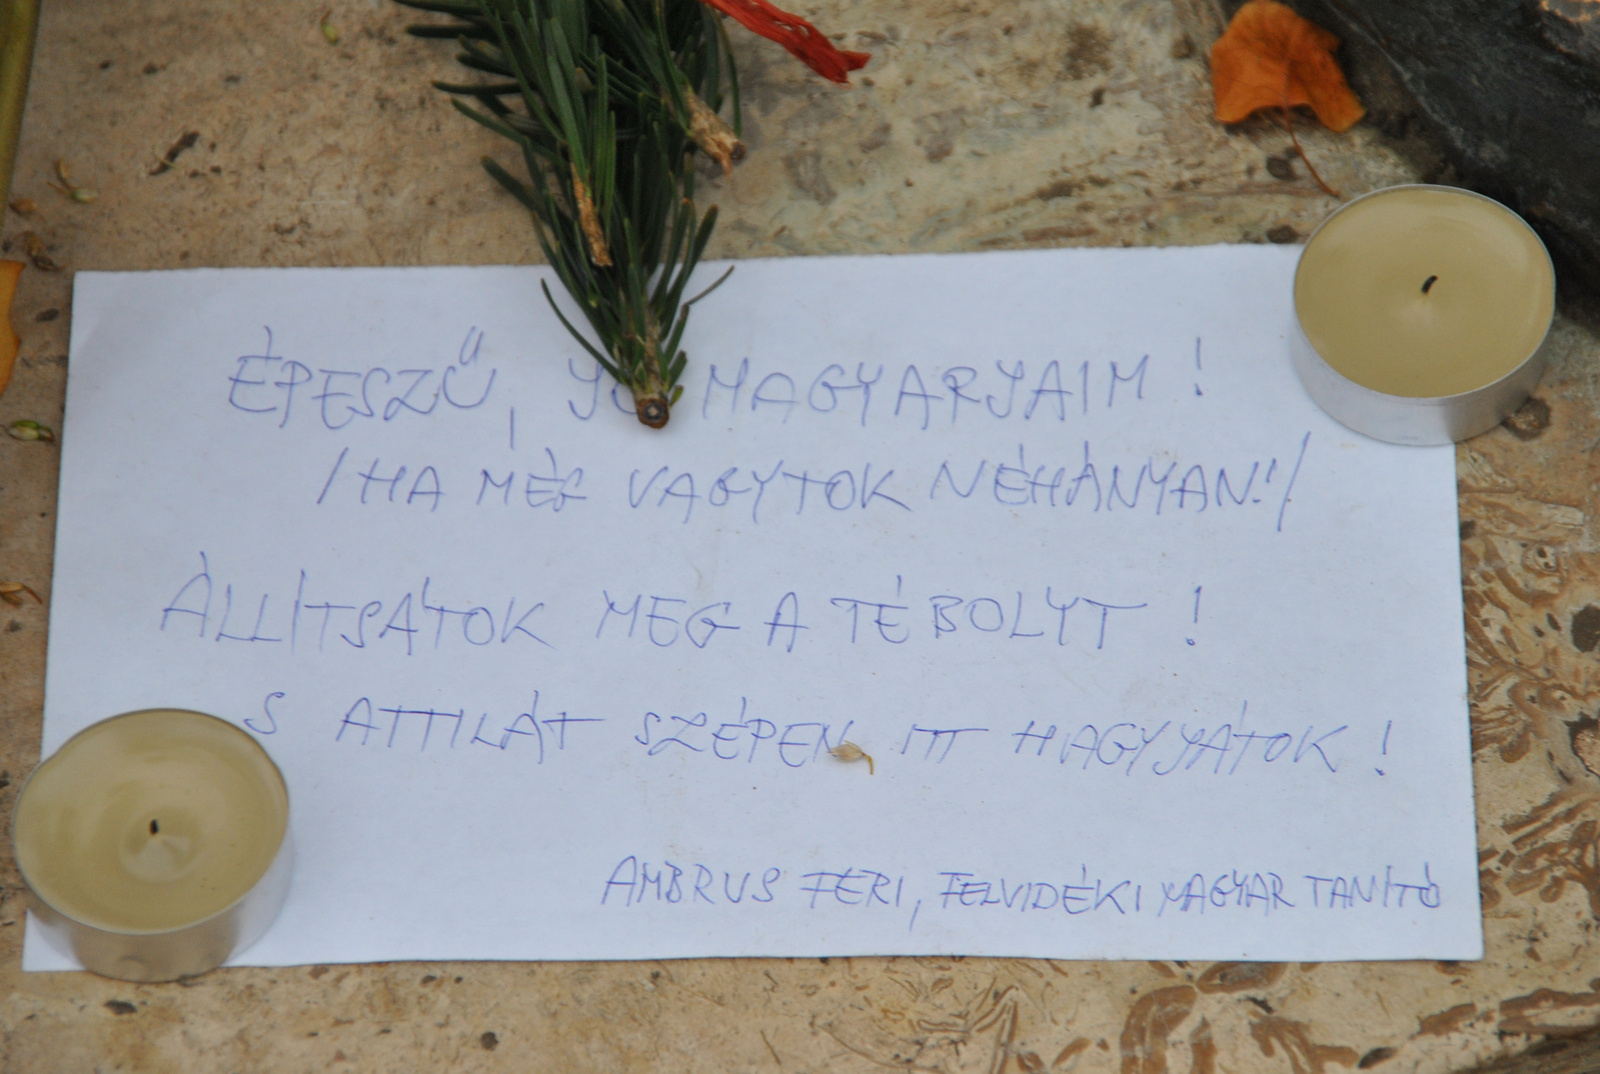 ÉPESZŰ, JÓ MAGYARJAIM !
/HA MÉG VAGYTOK NÉHÁNYAN!/
ÁLLÍTSÁTOK MEG A TÉBOLYT !
S ATTILÁT SZÉPEN ITT HAGYJÁTOK !
AMBRUS FERI, FELVIDÉKI MAGYAR TANÍTÓ